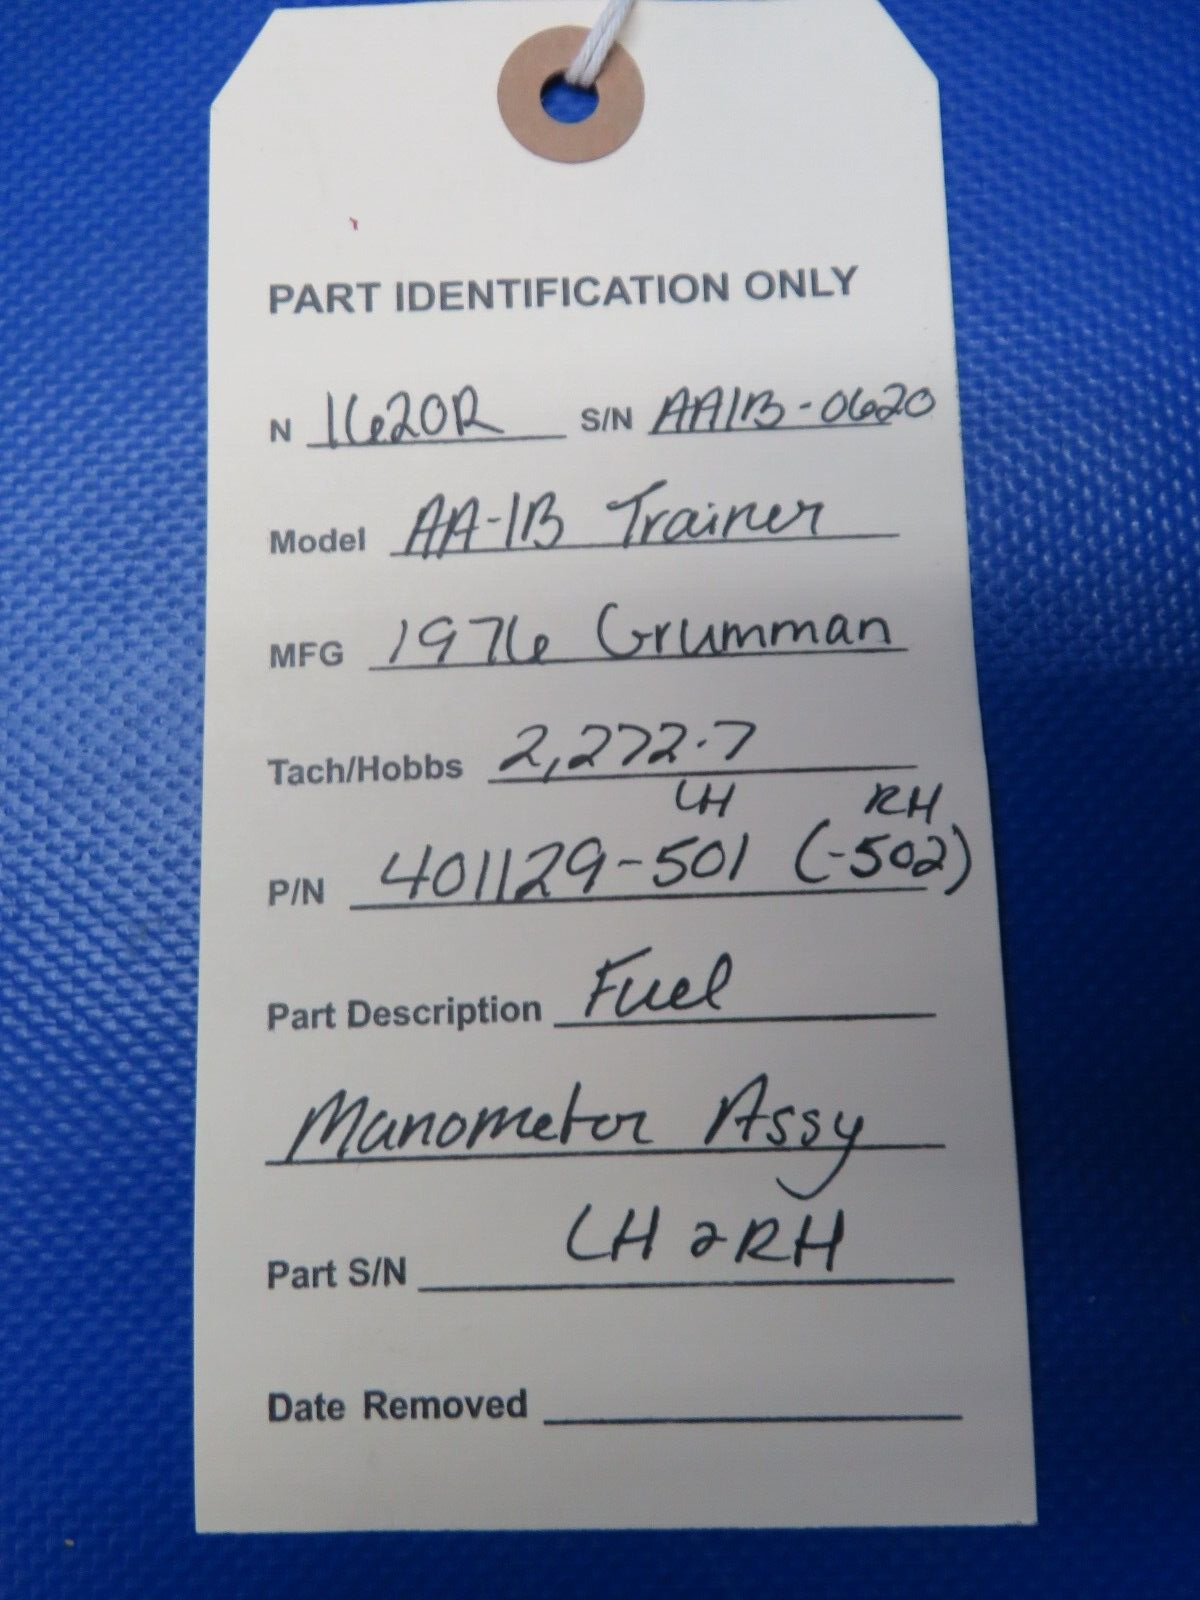 PART IDENTIFICATION ONLY
N 1620R S/N AA1B-0620
Model AA-1B Trainer
MFG 1976 Grumman
Tach/Hobbs 2,272.7
LH RH
P/N 401129-501 (-502)
Part Description Fuel
Manometer Assy
LH & RH
Part S/N
Date Removed